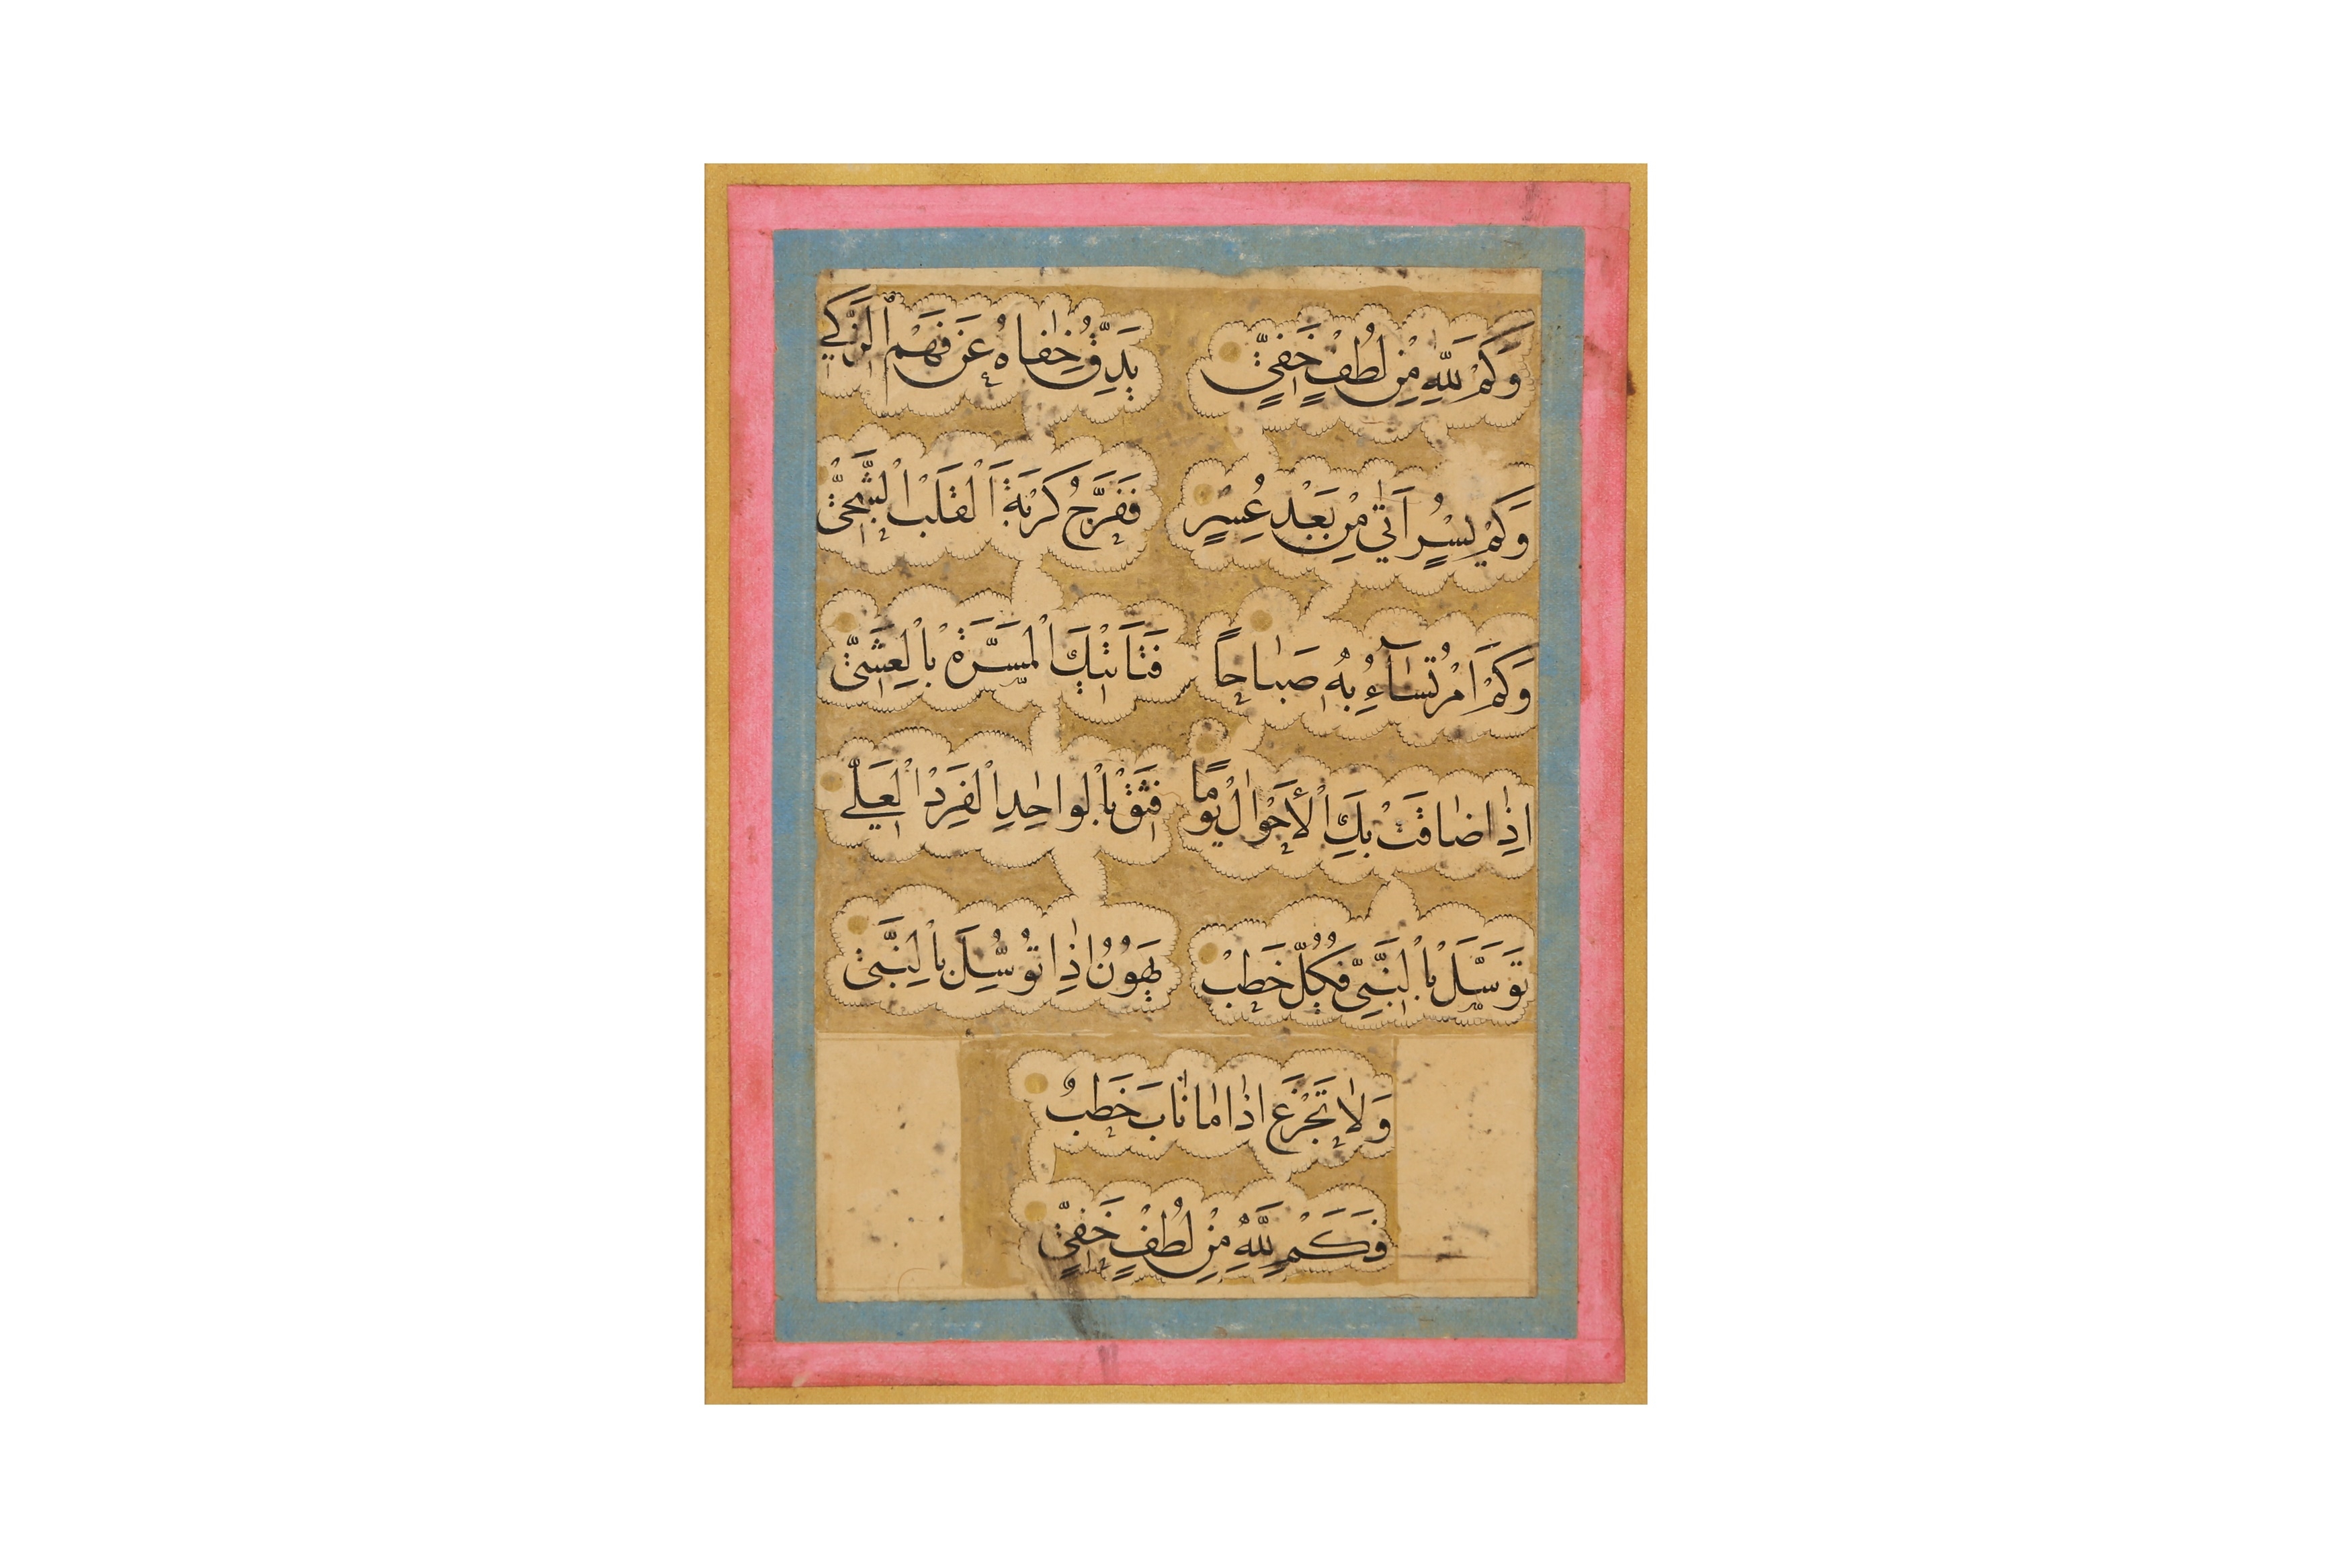 وَكَمْ لِلّٰهِ مِنْ لُطْفٍ خَفِيٍّ يَدِقُّ خِفَاهُ عَنْ فَهْمِ الزَّكِي
وَكَمْ يُسْرٍ اَتٰى مِنْ بَعْدِ عُسْرٍ فَفَرَّجَ كُرْبَةَ الْقَلْبِ الشَّجِيّ
وَكَمْ اَمْرٍ تُسَاۤءُ بِهِ صَبَاحًا فَتَاْتِيْكَ الْمَسَرَّةُ بِالْعَشِيّ
اِذَا ضَاقَتْ بِكَ الْاَحْوَالُ يَوْمًا فَثِقْ بِالْوَاحِدِ الْفَرْدِ الْعَلِي
تَوَسَّلْ بِالنَّبِيِّ فَكُلُّ خَطْبٍ يَهُونُ اِذَا تُوُسِّلَ بِالنَّبِيّ
وَلَا تَجْزَعْ اِذَا مَا نَابَ خَطْبٌ
فَكَمْ لِلّٰهِ مِنْ لُطْفٍ خَفِيّ